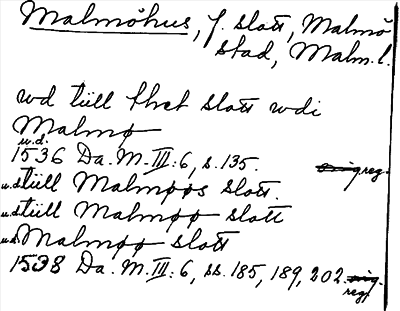 Malmöhus, f. slott, Malmö
stad, Malm. l.
wd tüll thet slott wdi
Malmø
u.d.
1536 Da. M. III: 6, s. 135. reg.
u.d. tüll Malmøøs slott.
u.d. tüll Malmøø slott
u.d. Malmøø slott
1538 Da. M. III: 6, ss. 185, 189, 202.
reg.